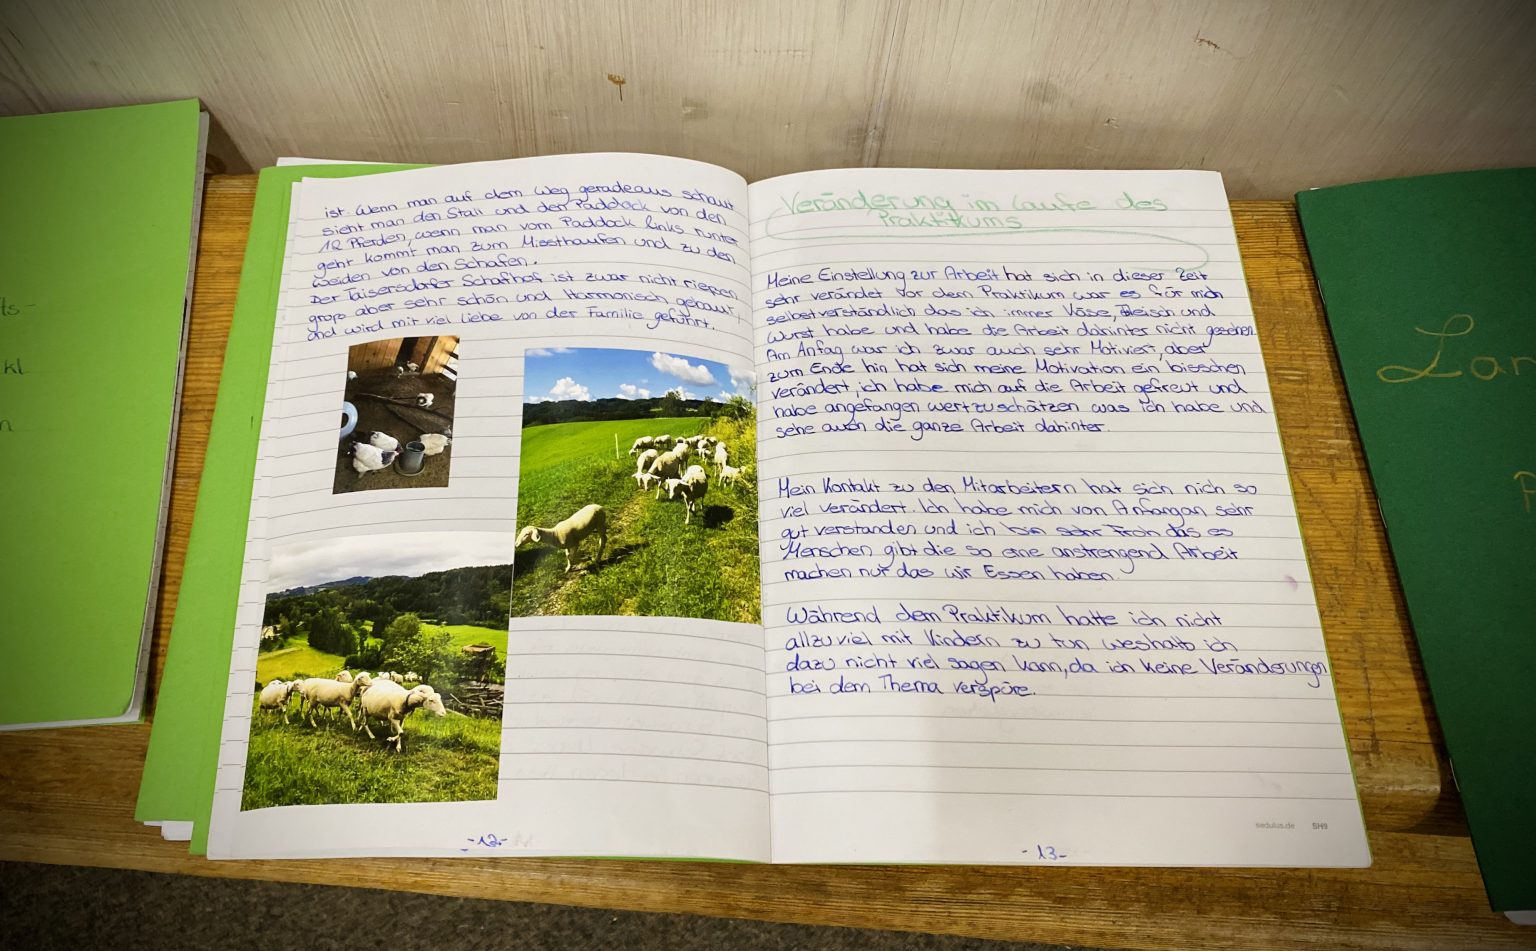 ist. Wenn man auf dem Weg geradeaus schaut
sieht man den Stall und den Paddock von den
12 Pferden, wenn man vom Paddock links runter
geht kommt man zum Misthaufen und zu den
Weiden von den Schafen.
Der Taisersdorfer Schafhof ist zwar nicht rießen
groß aber sehr schön und Harmonisch gebaut,
und wird mit viel Liebe von der Familie geführt.
-12-
Veränderung im Laufe des
Praktikums
Meine Einstellung zur Arbeit hat sich in dieser Zeit
sehr verändet vor dem Praktikum war es für mich
selbstverständlich das ich immer Käse, Fleisch und
Wurst habe und habe die Arbeit dahinter nicht gesehen.
Am Anfag war ich zwar auch sehr Motiviert, aber
zum Ende hin hat sich meine Motivation ein bisschen
verändert, ich habe mich auf die Arbeit gefreut und
habe angefangen wertzuschätzen was ich habe und
sehe auch die ganze Arbeit dahinter.
Mein Kontakt zu den Mitarbeitern hat sich nich so
viel verändert. Ich habe mich von Anfangan sehr
gut verstanden und ich bin sehr Froh das es
Menschen gibt die so eine anstrengend Arbeit
machen nur das wir Essen haben.
Während dem Praktikum hatte ich nicht
allzuviel mit Kindern zu tun weshalb ich
dazu nicht viel sagen kann, da ich keine Veränderungen
bei dem Thema verspüre.
sedulus.de SH9
-13-
ts-
kl
n
Lan